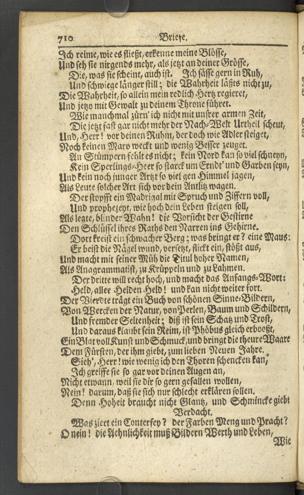 710 Briefe.
Ich reime, wie es fließt, erkenne meine Blösse,
Und seh sie nirgends mehr, als jetzt an deiner Grösse,
Die, was sie scheint, auch ist. Ich sässe gern in Ruh,
Und schwiege länger still; die Wahrheit läßts nicht zu,
Die Wahrheit, so allein mein redlich Hertz regieret,
Und jetzt mit Gewalt zu deinem Throne führet.
Wie manchmal zürn' ich nicht mit unsrer armen Zeit,
Die jetzt fast gar nicht mehr der Nach-Welt Urtheil scheut,
Und, Herr! vor deinen Ruhm, der doch wie Adler steiget,
Noch keinen Maro weckt und wenig Besser zeuget.
An Stümpern fehlt es nicht; kein Nord kan so viel schneyn,
Kein Sperlings-Heer so starck um Ernd' und Garben seyn,
Und kein noch junger Artzt so viel gen Himmel jagen,
Als Leute solcher Art sich vor dein Antlitz wagen.
Der stopfft ein Madrigal mit Spruch und Ziffern voll,
Und propheceyt, wie hoch dein Leben steigen soll,
Als legte, blinder Wahn! die Vorsicht der Gestirne
Den Schlüssel ihres Raths den Narren ins Gehirne.
Dort kreist ein schwacher Berg; was bringt er? eine Maus:
Er beißt die Nägel wund, versetzt, flickt ein, stößt aus,
Und macht mit seiner Müh die Titul hoher Namen,
Als Anagrammatist, zu Krüppeln und zu Lahmen.
Der dritte will recht hoch, und macht das Anfangs-Wort:
Held, aller Helden Held! und kan nicht weiter fort.
Der Vierdte trägt ein Buch von schönen Sinne-Bildern,
Von Wercken der Natur, von Perlen, Baum und Schildern,
Und fremder Seltenheit; diß ist sein Schatz und Trost,
Und daraus klaubt sein Reim, ist Phöbus gleich erboßt,
Ein Blat voll Kunst und Schmuck, und bringt die theure Waare
Dem Fürsten, der ihm giebt, zum lieben Neuen Jahre.
Sieh', Herr! wie wenig ich den Thoren schencken kan,
Ich greiffe sie so gar vor deinen Augen an,
Nicht etwann, weil sie dir so gern gefallen wollen,
Nein! darum, daß sie sich nur schlecht erklären sollen.
Denn Hoheit braucht nicht Glantz, und Schmincke giebt
Verdacht.
Was ziert ein Conterfey? der Farben Meng und Pracht?
O nein! die Aehnlichkeit muß Bildern Werth und Leben,
Wie